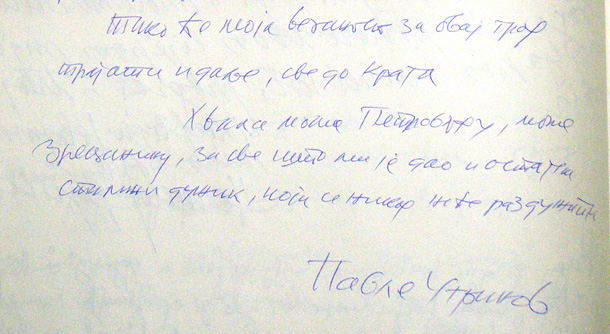 Тико ће моја везаност за овај град
трајати и даље, све до краја
Хвала моме Петровграду, моме
Зрењанину, за све што ми је дао и остајем
стални дужник, који се никад неће раздужити
Павле Угринов